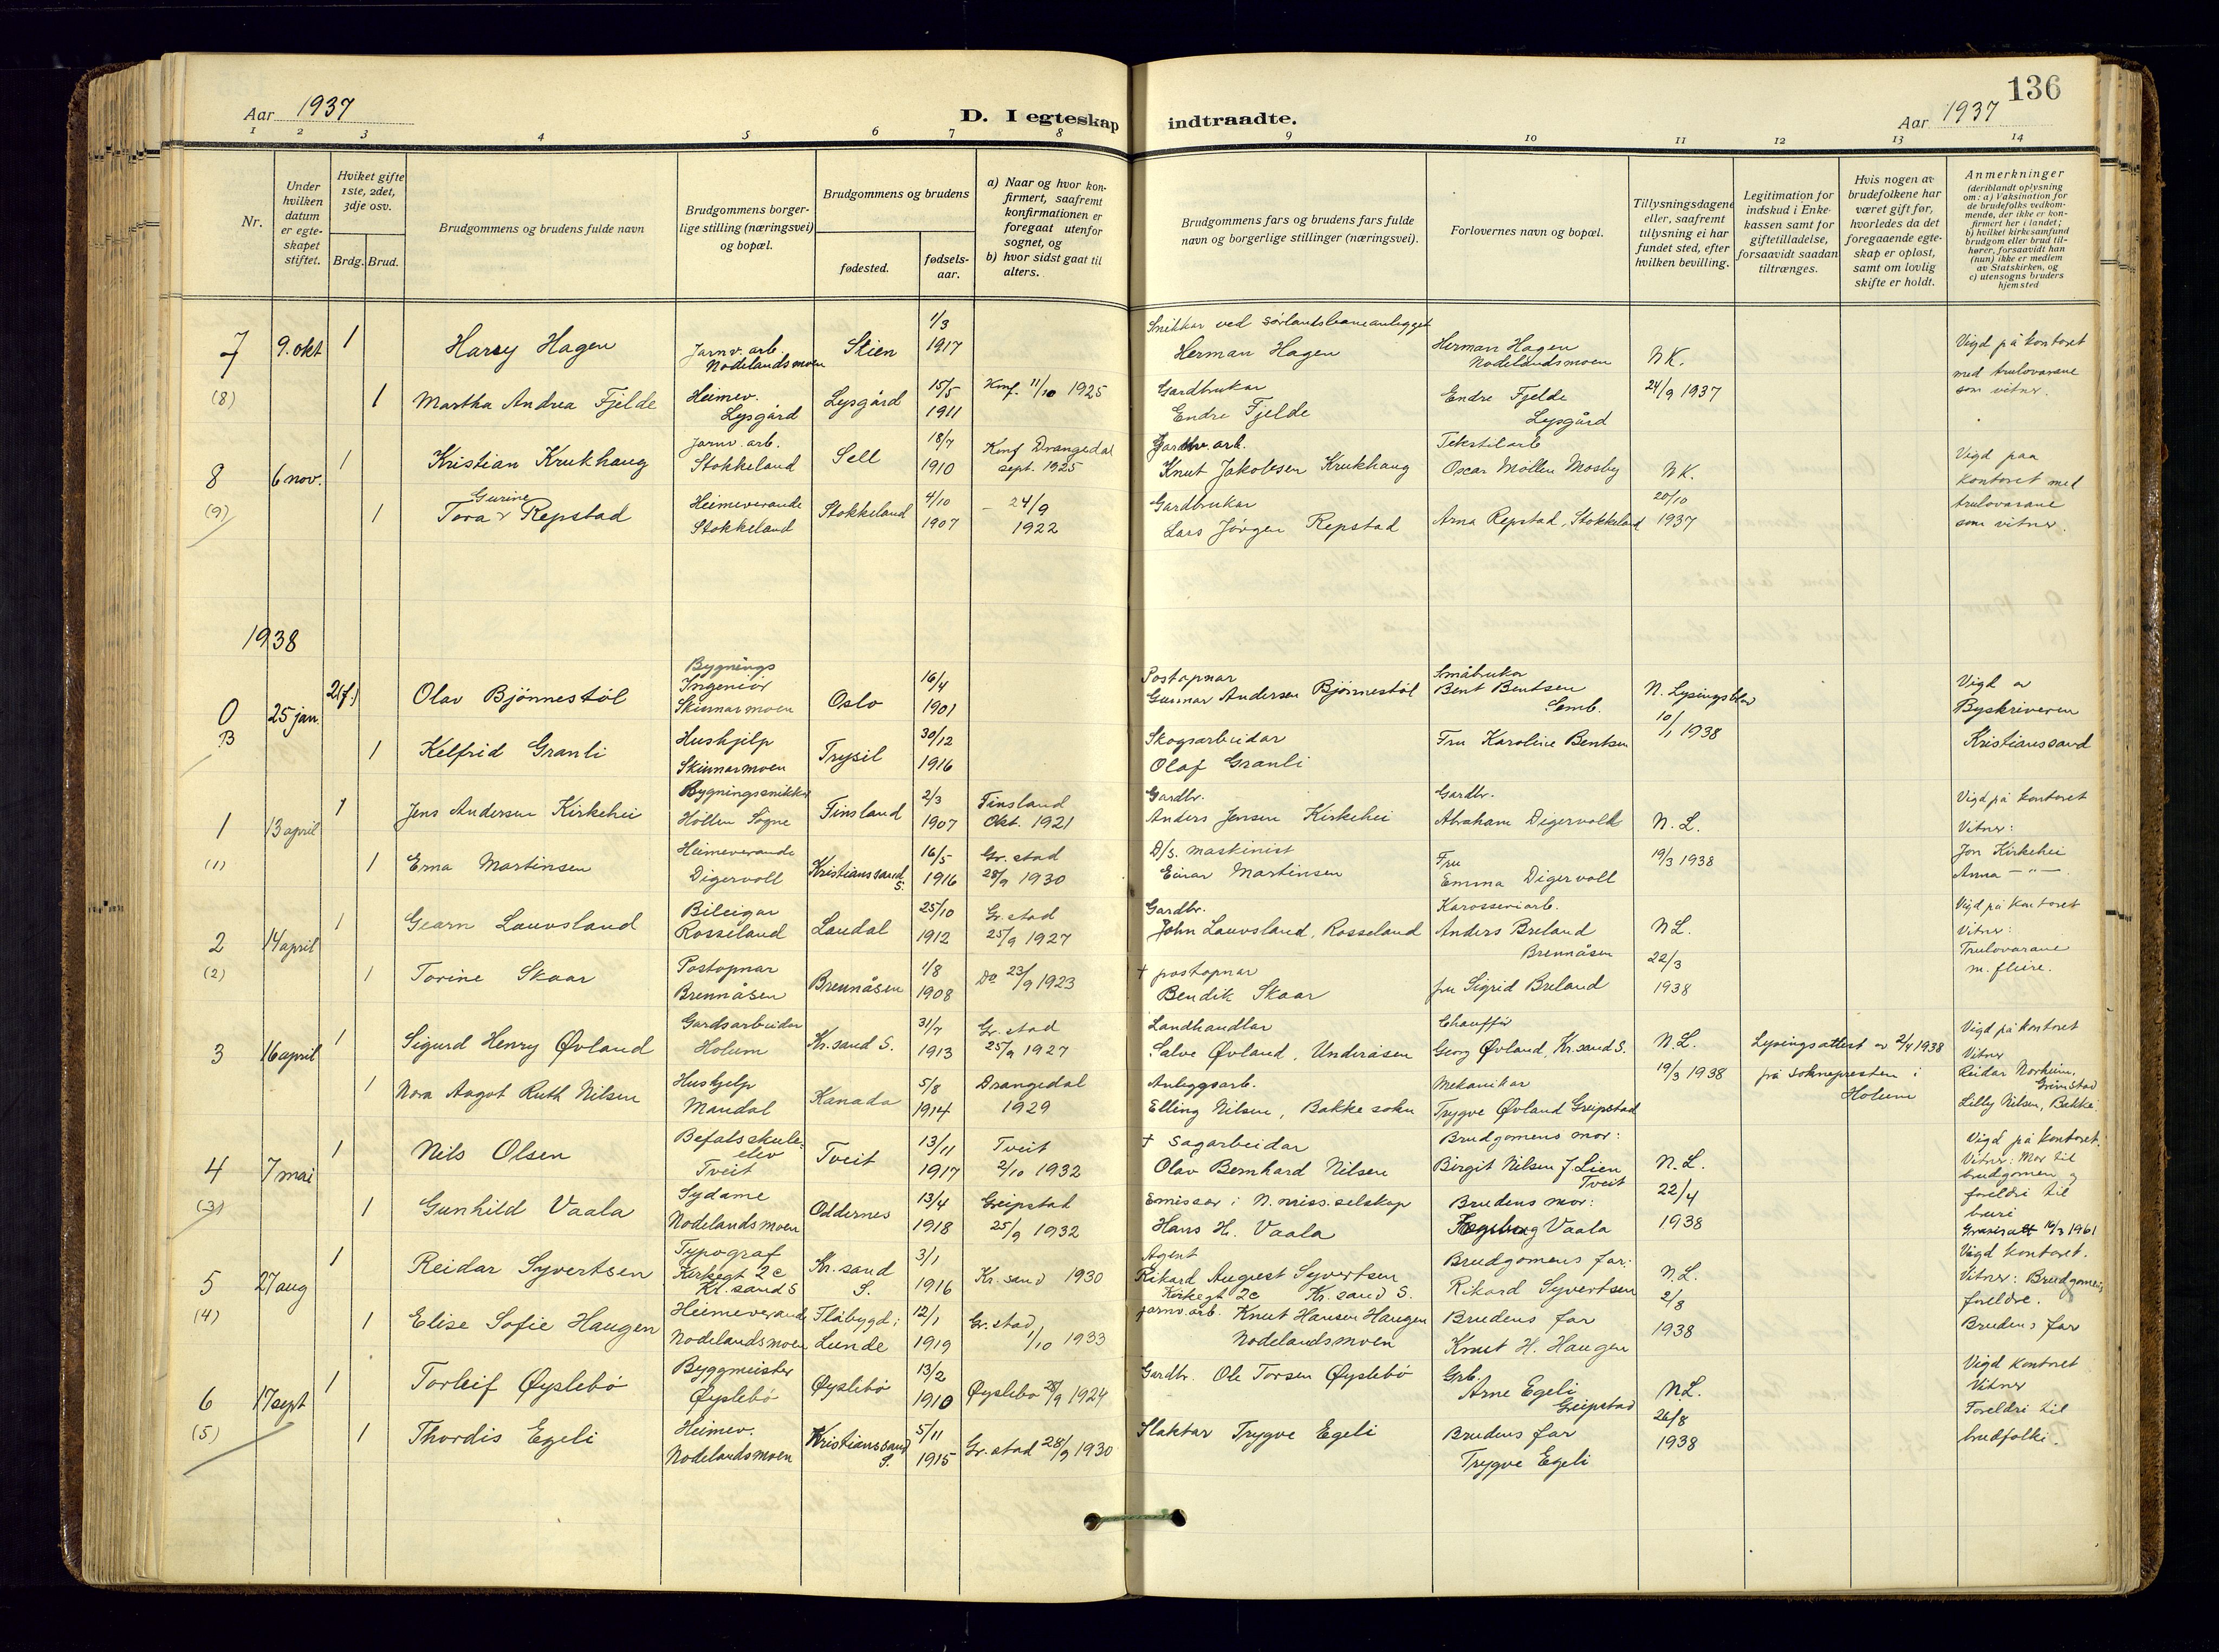 136
Aar 1937
D. I egteskap indtraadte.
Aar 1937
1 2 3 4 5 6 7 8 9 10 11 12 13 14
Nr.
Under hvilken datum er egteskapet stiftet.
Hvilket gifte 1ste, 2det, 3dje osv.
Brdg. Brud.
Brudgommens og brudens fulde navn
Brudgommens borgerlige stilling (næringsvei) og bopæl.
Brudgommens og brudens
fødested.
fødselsaar.
a) Naar og hvor konfirmert, saafremt konfirmationen er foregaat utenfor sognet, og
b) hvor sidst gaat til alters.
Brudgommens fars og brudens fars fulde navn og borgerlige stillinger (næringsvei).
Forlovernes navn og bopæl.
Tillysningsdagene eller, saafremt tillysning ei har fundet sted, efter hvilken bevilling.
Legitimation for indskud i Enkekassen samt for giftetilladelse, forsaavidt saadan tiltrænges.
Hvis nogen av brudefolkene har været gift før, hvorledes da det foregaaende egteskap er opløst, samt om lovlig skifte er holdt.
Anmerkninger
(deriblandt oplysning om: a) Vaksination for de brudefolks vedkommende, der ikke er konfirmert her i landet; b) hvilket kirkesamfund brudgom eller brud tilhører, forsaavidt han (hun) ikke er medlem av Statskirken, og c) utensogns bruders hjemsted
7 9. okt 1 Harry Hagen Jarnv. arb. Nodelandsmoen 1/3 1917 Snikkar ved Sørlandsbaneanlegget Herman Hagen Herman Hagen Nodelandsmoen N K. Vigd på kontoret
(8) 1 Martha Andrea Fjelde Heimev. Lysgård Lysgård 15/5 1911 Konf. 11/10 1925 Gardbrukar Endre Fjelde Endre Fjelde Lysgård 24/9 1937 med trulovarane som vitner.
8 6 nov. 1 Kristian Krukhaug Jarnv. arb. Stokkeland Sell 18/7 1910 Konf Drangedal sept. 1925 Knut Jakobsen Krukhaug Tekstilarb Oscar Mollen Mosby N K. Vigd paa kontoret med
(9) 1 Tora Gurine Repstad Heimeverande Stokkeland Stokkeland 4/10 1907 - 24/9 1922 Gardbrukar Lars Jørgen Repstad Arna Repstad, Stokkeland 20/10 1937 trulovarane som vitner.
1938
0 25 jan. 2(f.) Olav Bjönnestöl Bygnings Ingeniör Skinnarmoen Oslo 16/4 1901 Postopnar Gunnar Andersen Bjönnestöl Småbrukar Bent Bentsen Semb. N. Lysingsblad Vigd av Byskriveren
B 1 Kelfrid Granli Hushjelp Skinnarmoen Trysil 30/12 1916 Skogsarbeidar Olaf Granli Fru Karoline Bentsen 10/1 1938 Kristianssand
1 13 april 1 Jens Andersen Kirkehei Bygningssnikkar Höllen Sogne Finsland 2/3 1907 Finsland Okt. 1921 Gardbr. Anders Jensen Kirkehei Gardbr. Abraham Digervold N. L. Vigd på kontoret Vitner:
(1) 1 Erna Martinsen Heimeverande Digervoll Kristianssand S. 16/5 1916 Gr. stad 28/9 1930 D/S. maskinist Einar Martinsen Fru Emma Digervoll 19/3 1938 Jon Kirkehei Anna — " —.
2 14 april 1 Gearn Lauvsland Bileigar Rosseland Laudal 25/10 1912 Gr. stad 25/9 1927 Gardbr. John Lauvsland, Rosseland Karosseriarb. Anders Breland Brennåsen N L. Vigd på kontoret Vitner:
(2) 1 Torine Skaar Postopnar Brennåsen Brennåsen 1/8 1908 Do 23/9 1923 † postopnar Bendik Skaar fru Sigrid Breland 22/3 1938 Trulovarane m. fleire.
3 16 april 1 Sigurd Henry Øvland Gardsarbeidar Holum Kr. sand S. 31/7 1913 Gr. stad 25/9 1927 Landhandlar Salve Øvland, Underåsen Chauffør Georg Øvland, Kr. sand S. N. L. Lysingsattest av 2/4 1938 Vigd på kontoret Vitner
1 Nora Aagot Ruth Nilsen Hushjelp Mandal Kanada 5/8 1914 Drangedal 1929 Anleggsarb. Elling Nilsen, Bakke sokn Mekanikar Trygve Øvland Greipstad 19/3 1938 frå soknepresten i Holum Reidar Norheim, Grimstad Lilly Nilsen, Bakke.
4 7 mai 1 Nils Olsen Befalsskule elev Tveit Tveit 13/11 1917 Tveit 2/10 1932 † Sagarbeidar Olav Bernhard Nilsen Brudgomens mor: Birgit Nilsen f Lien Tveit N. L. Vigd på kontoret. Vitner: Mor til brudgomen og
(3) 1 Gunhild Vaala Sydame Nodelandsmoen Oddernes 13/4 1918 Greipstad 25/9 1932 Emissær i N. miss. selskap Hans H. Vaala Brudens mor: Ingeborg Vaala 22/4 1938 foreldri til bruri 16/3 1961
5 27 aug 1 Reidar Syvertsen Typograf Kirkegt 2c Kr. sand S Kr. sand S. 3/1 1916 Kr. sand 1930 Agent Rikard August Syvertsen Kirkegt 2c Kr. sand S. Brudgomens far: Rikard Syvertsen N. L. Vigd kontoret. Vitner: Brudgomens foreldre.
(4) 1 Elise Sofie Haugen Heimeverande Nodelandsmoen Flåbygd i Lunde 12/1 1919 Gr. stad 1/10 1933 Jarnv. arb. Knut Hansen Haugen Nodelandsmoen Brudens far Knut H. Haugen 2/8 1938 Brudens far
6 17 sept 1 Torleif Øyslebö Byggmeister Øyslebö Øyslebö 13/2 1910 Øyslebö 28/9 1924 Gardbr. Ole Torsen Øyslebö Grb. Arne Egeli Greipstad N L. Vigd kontoret Vitner
(5) 1 Thordis Egeli Heimev. Nodelandsmoen Kristianssand S. 5/11 1915 Gr. stad 28/9 1930 Slaktar Trygve Egeli Brudens far Trygve Egeli 26/8 1938 Foreldri til brudfolki.